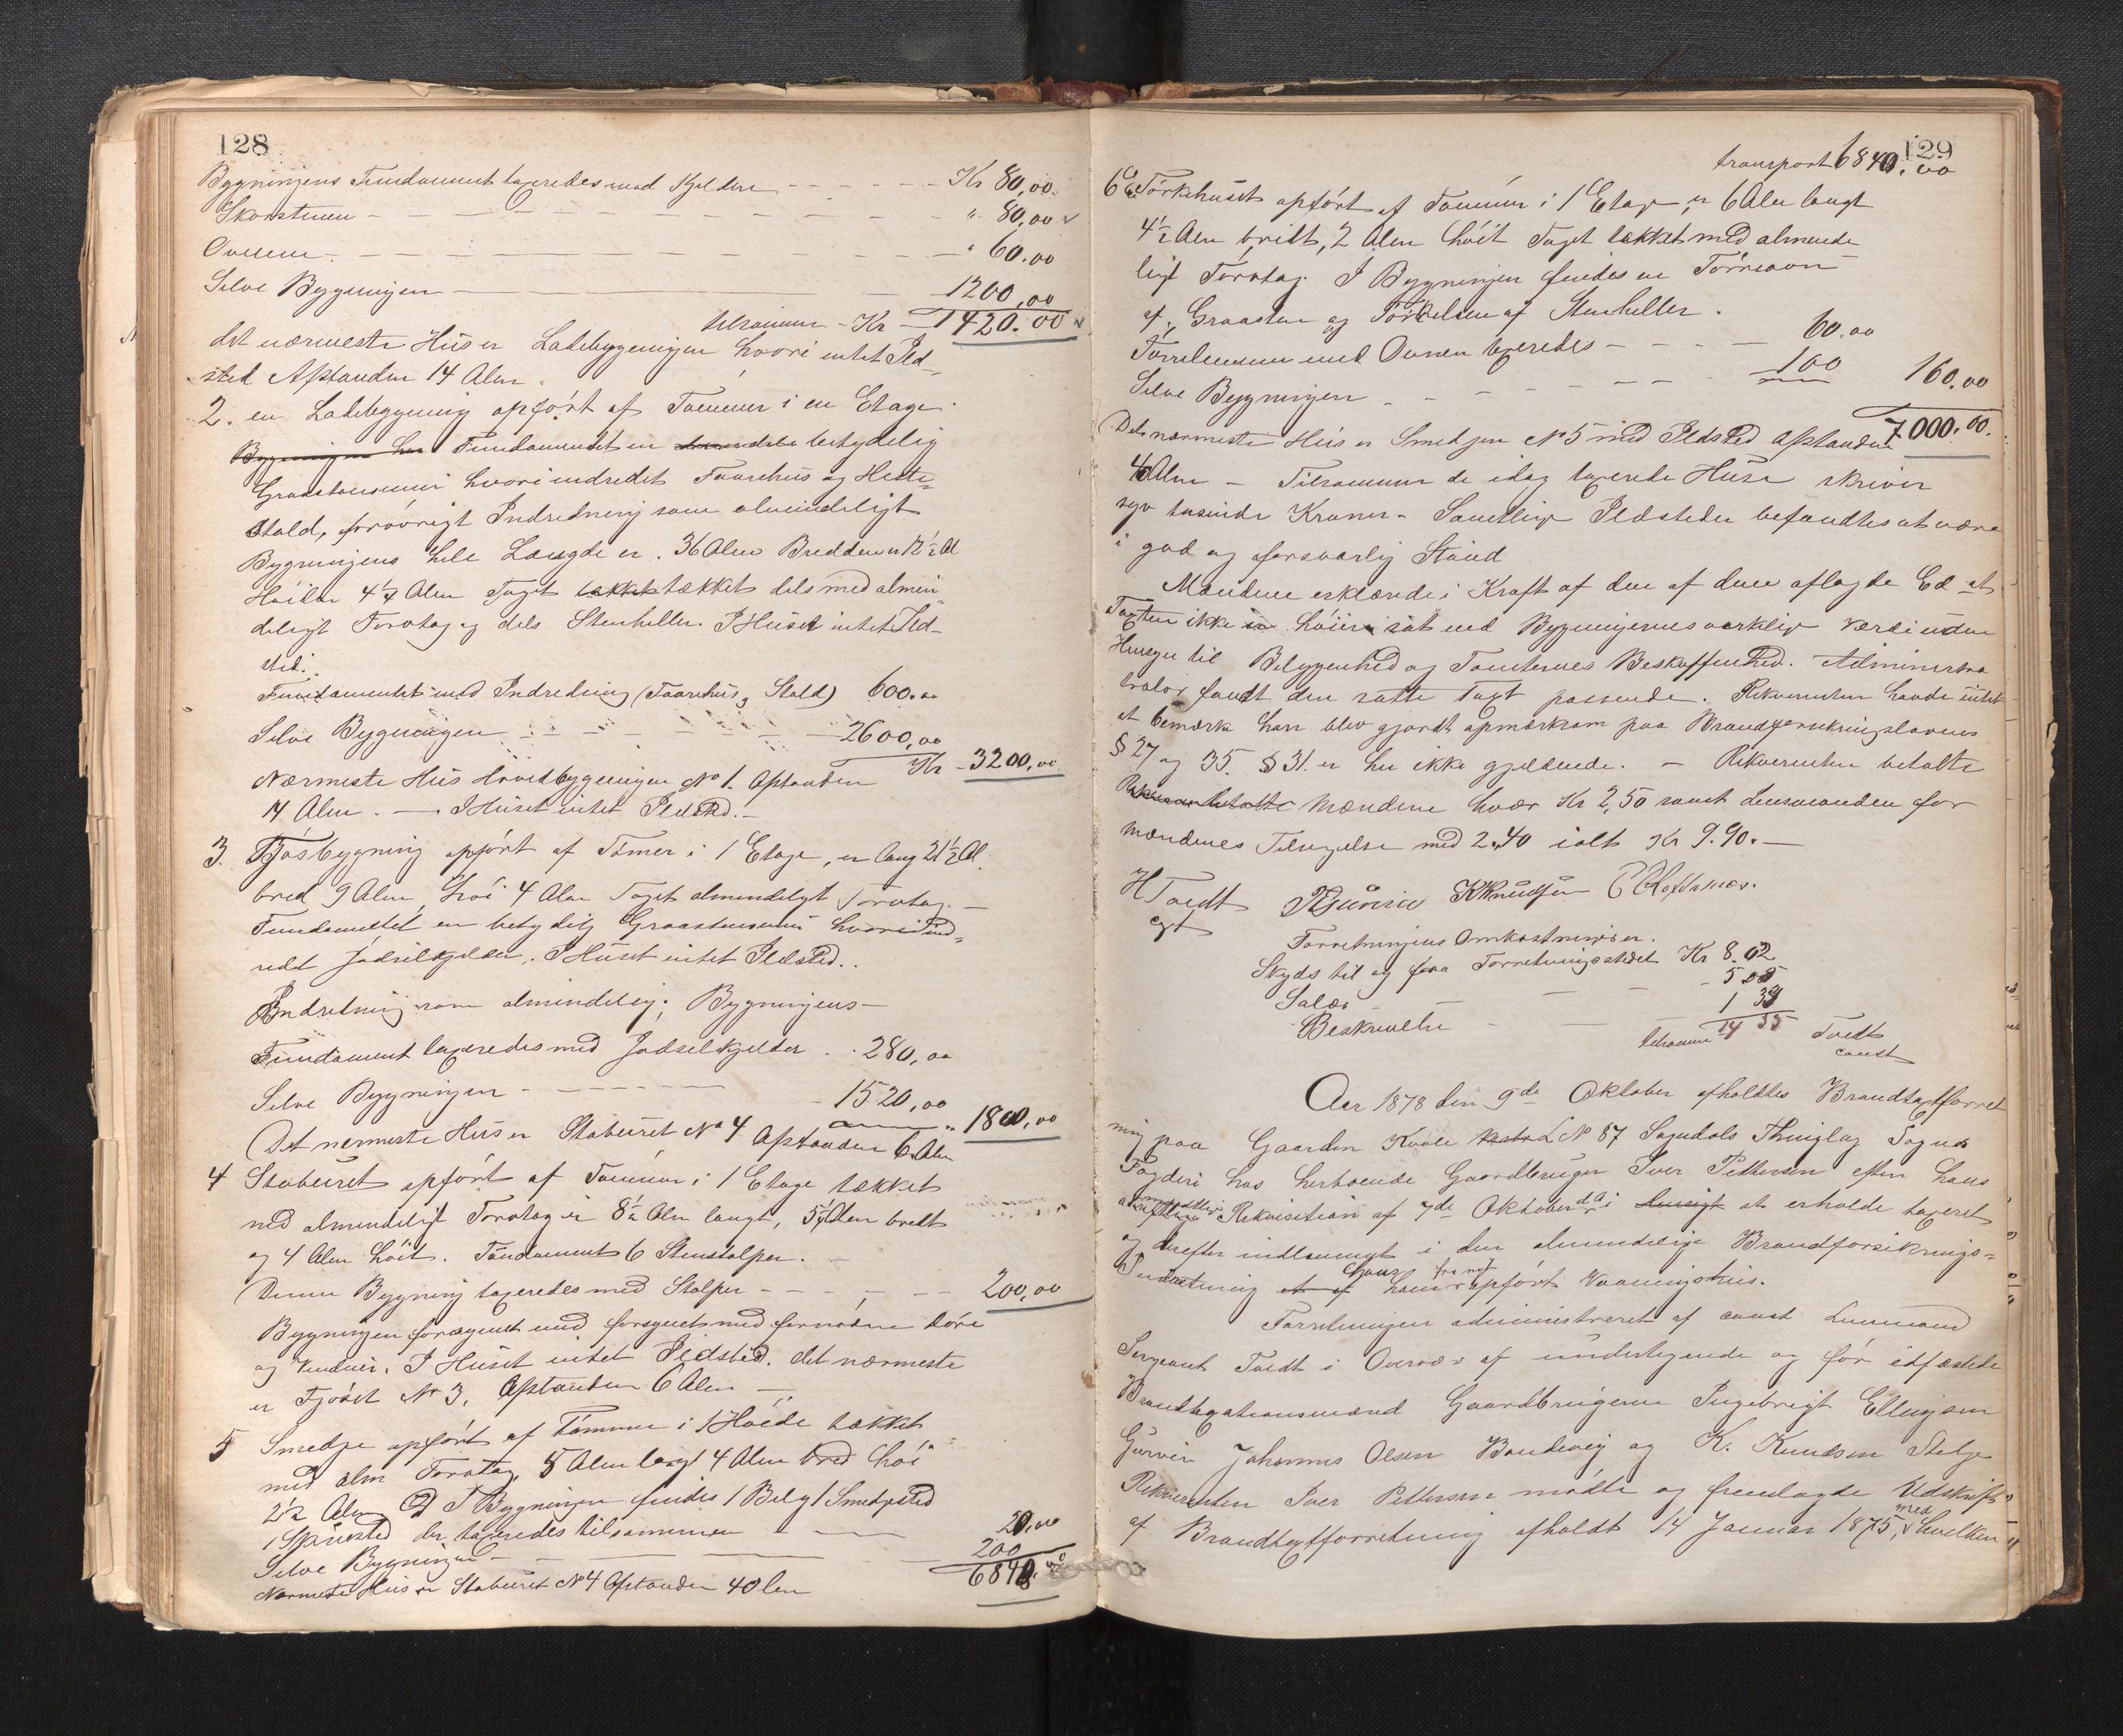 128
Bygningens Fundament taxeredes med Kjeldere - - - - - Kr 80,00.
Skorstenen - - - - - - - - - - " 80,00
Ovnene - - - - - - - - - - " 60.00
Selve Bygningen - - 1200,00
tilsammen - Kr - 1420.00
det nærmeste Hus er Ladebygningen hvori intet Ild-
sted Afstanden 14 Alen.
2. en Ladebygning opført af Tømmer i en Etage.
Bygningen har Fundamentet en betydelig
Graastensmur hvori indredet Faarehus og Heste-
stald, forøvrigt Indredning som almindeligt
Bygningens hele Længde er 36 Alen Bredden 12 1/2 Al
Høiden 4 1/4 Alen Taget takket tækket dels med almin-
deligt Torvtag og dels Stenheller. I Huset intet Ild-
sted.
Fundamentet med Indredning (Faarehus og Stald) 600.00
Selve Bygningen - - - - - 2600,00
Kr - 3200,00
Nærmeste Hus Hovedbygningen No 1. Afstanden
14 Alen. - I Huset intet Ildsted. -
3. Fjøsbygning opført af Tømer i 1 Etage, er lang 21 1/2 Al.
bred 9 Alen, høi 4 Alen Taget almindeligt Torvtag. -
Fundamentet en betydelig Graastensmur hvori ind-
redet Jødselkjelder. I Huset intet Ildsted.
Indretning som almindelig; Bygningens -
Fundament taxeredes med Jødselkjelder . . 280,00
Selve Bygningen - - - - - 1520,00
" 1800,00
Det nærmeste Hus er Stabburet No 4 Afstanden 6 Alen
4 Stabburet opført af Tømmer i 1 Etage tækket
med almindeligt Torvtag er 8 1/2 Alen langt, 5 1/4 Alen bredt
og 4 Alen høit. Fundament 6 Stenstolper.
Denne Bygning taxeredes med Stolper - - - - - 200,00
Bygningen forøvrigt med forsynet med fornødne Døre
og Vinduer. I Huset intet Ildsted. det nærmeste
er Fjøset No 3. Afstanden 6 Alen -
5 Smedje opført af Tømmer i 1 Høide takket
med alm Torvtag, 5 Alen langt 4 Alen bred høi
2 1/2 Alen I Bygningen findes 1 Belg 1 Smedjested
1 Skruested der taxeredes tilsammen - - 20,00
Selve Bygningen - - - 200
Nærmeste Hus er Stabburet No 4 Afstanden 40 Alen
6840.00
129
transport 6840.00
6. Tørkehuset opført af Tømmer i 1 Etage, er 6 Alen langt
4 1/2 Alen bredt, 2 Alen høit Taget takket med alminde
ligt Torvtag. I Bygningen findes en Tørreovn
af Graasten og Tørrelsen af Stenheller.
Tørrelemmen med Ovnen taxeredes - - - - 60.00
Selve Bygningen - - - - - 100
160.00
7000.00.
Det nærmeste Hus er Smedjen No 5 med Ildsted Afstanden
40 Alen - Tilsammen de idag taxerede Huse skriver
syv tusinde Kroner. Samtlige Ildsteder befandtes at være
i god og forsvarlig Stand
Mændene erklærede i Kraft af den af dem aflagde Ed at
Taxten ikke er høiere sat end Bygningernes virkelige Værdi uden
Hensyn til Beliggenhed og Tomternes Beskaffenhed. Administra
tralor fandt den satte Taxt passende. Rekvirenten havde intet
at bemærke han blev gjordt opmærksom paa Brandforsikringslovens
§ 27 og 35. § 31. er her ikke gjældende. - Rekvirenten betalte
Mændene hver Kr 2,50 samt Lensmanden for
Mændenes Tilsigelse med 2.40 ialt Kr 9.90. -
H Tvedt
cst
K Knudsen
Forretningens Omkostninger.
Skyds til og fra Forretningsstedet Kr 8.02
Salær - - - - 5 00
Beskrivelse - - - 1 34
tilsammen 14 35
Tvedt
const
Aar 1878 den 9de Oktober afholdtes Brandtaxtforret
ning paa Gaarden Kvale LNo 87 Sogndals Thinglag Sogns
Fogderi hos herboende Gaardbruger Iver Pettersen efter hans
mundtlige Rekvisition af 7de Oktober d. A. i Hensigt at erholde taxeret
og derefter indlemmet i den almindelige Brandforsikrings-
Indretning et af ham opført Vaaningshus.
Forretningen administreret af const Lensmand
Sergeant Tvedt i Overvær af undertegnede og før edfæstede
Brandtaxationsmænd Gaardbrugerne Ingebrigt Ellingsen
Gurvin Johannes Olsen Bondevig og K. Knudsen Stelje
Rekvirenten Iver Pettersen mødte og fremlagde Udskrift
af Brandtaxtforretning afholdt 14 Januar 1875, med hvilken